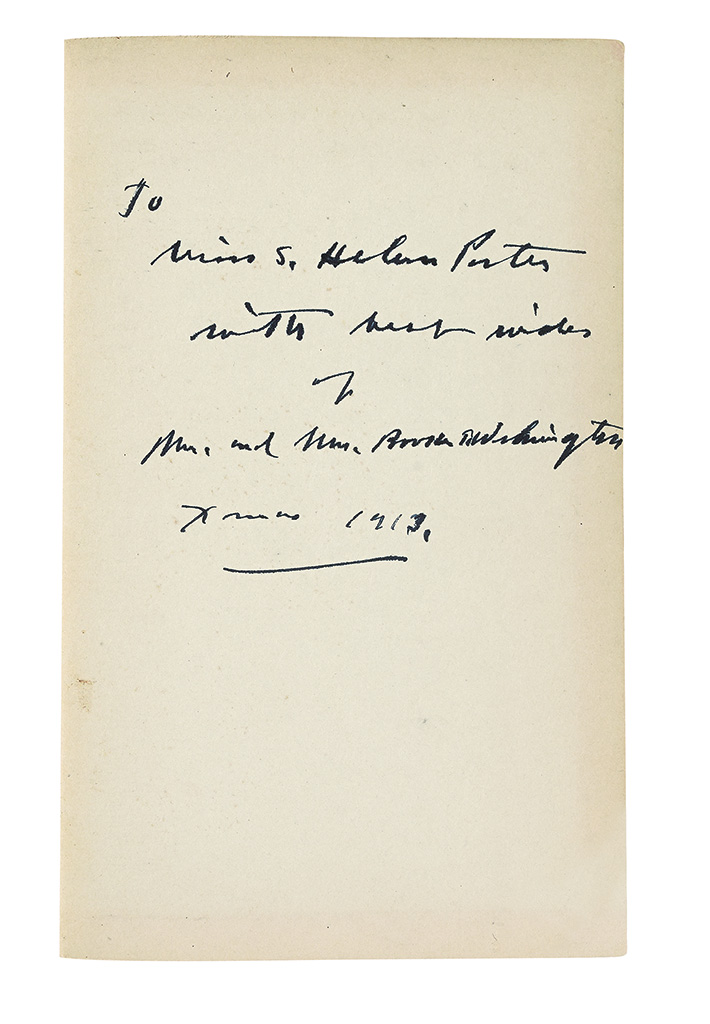 To
Miss S. Helen Porter
with best wishes
of
Mr. and Mrs. Booker T. Washington
Xmas 1913.